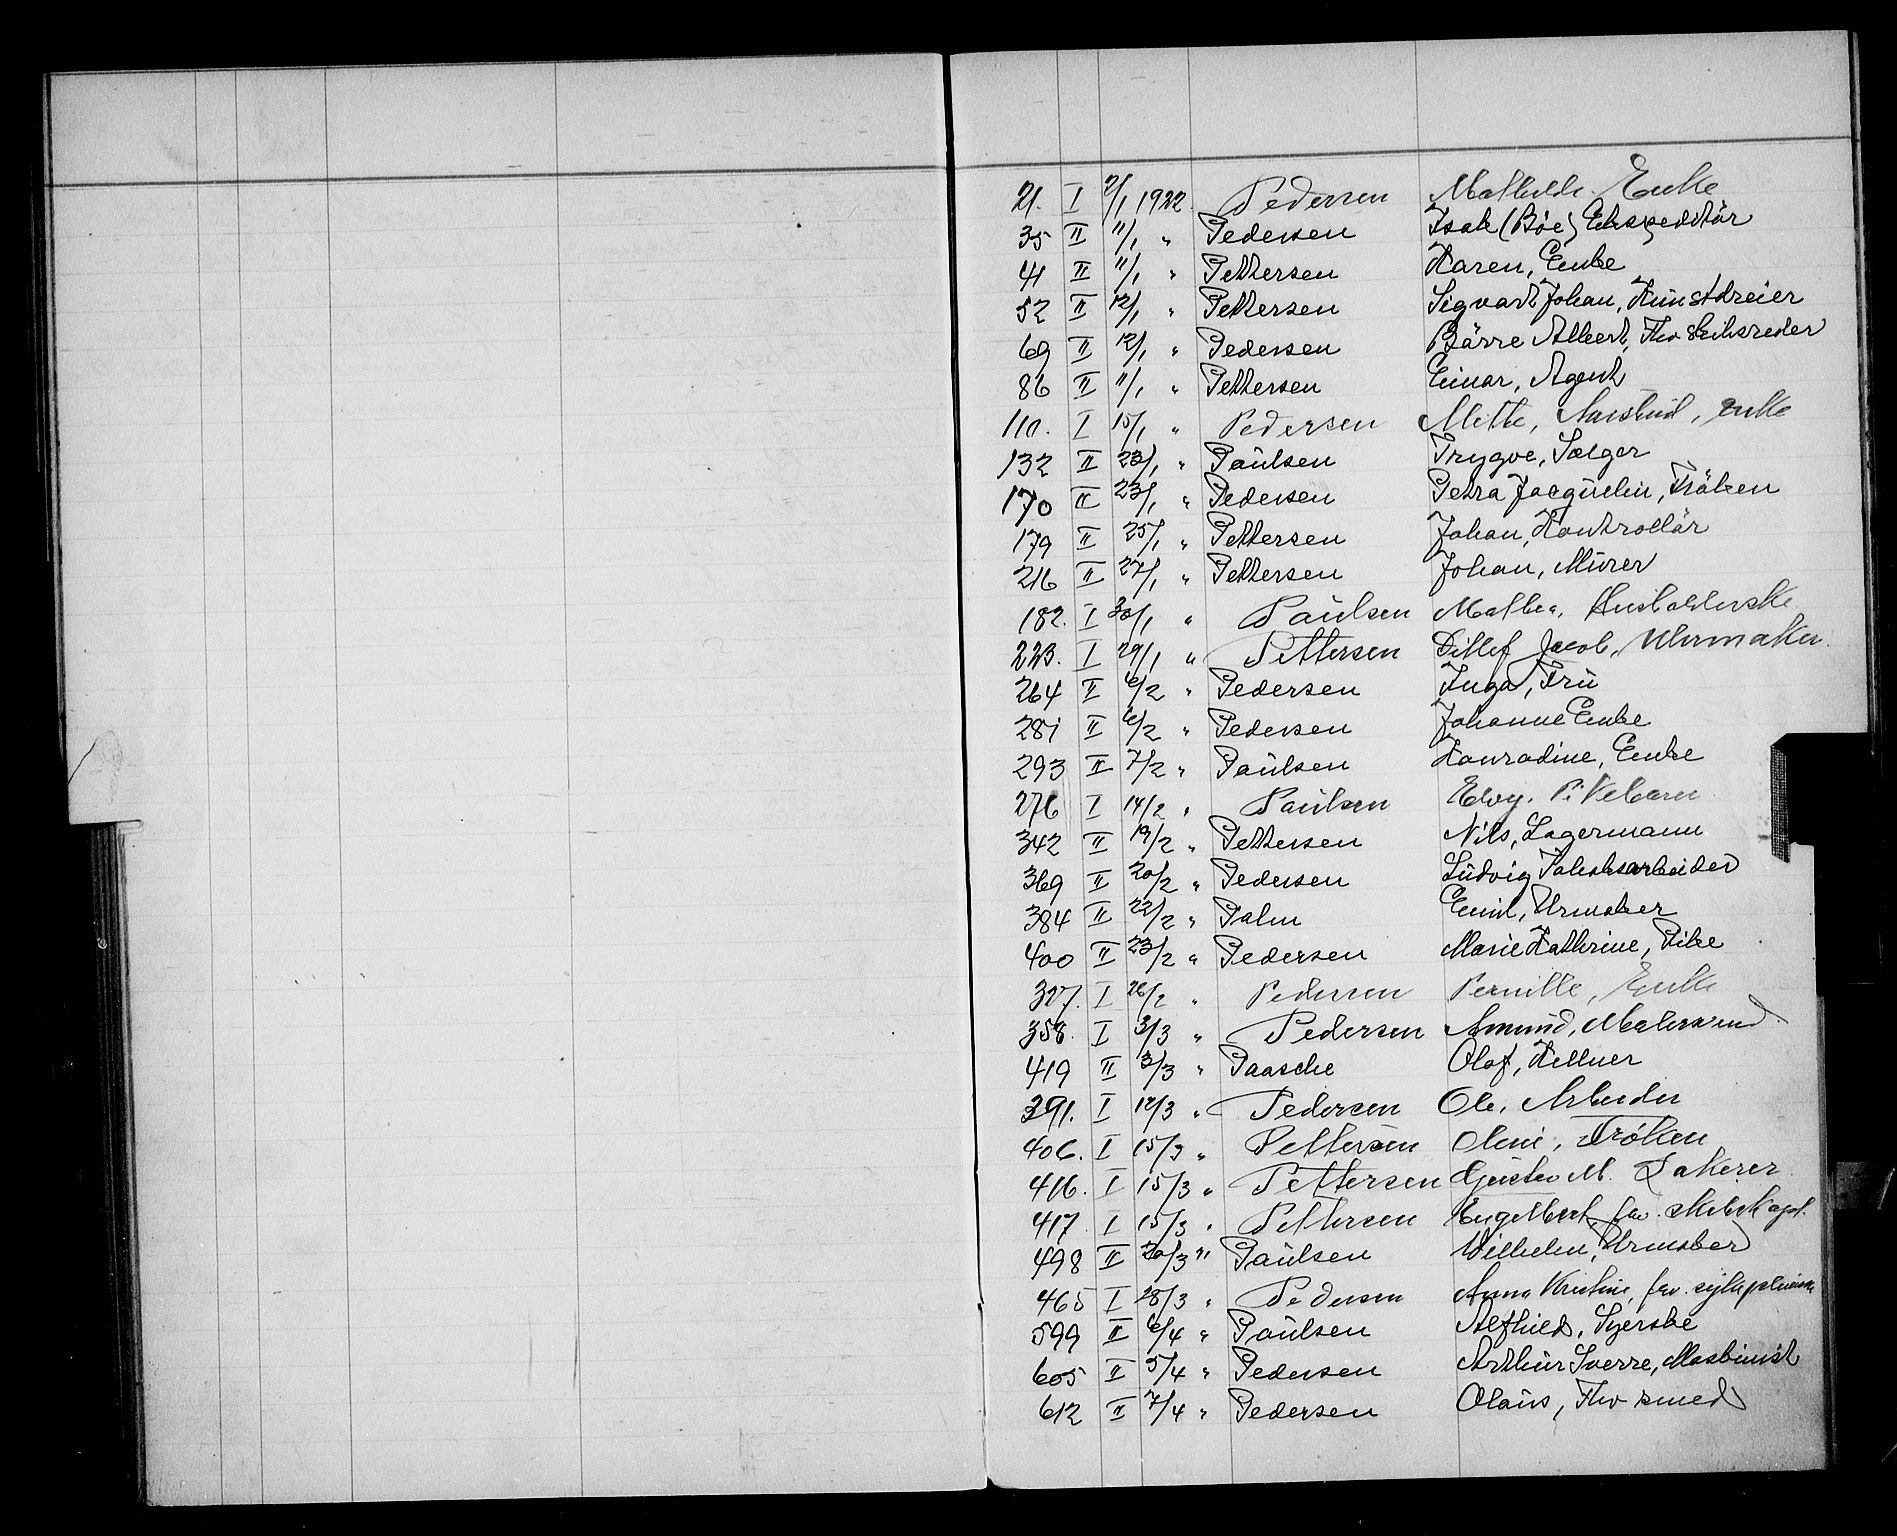 21. I 7/1 1922. Pedersen Mathilde Enke
35 II 11/1 " Pedersen Isak (Böe) Ekspeditör
41 II 11/1 " Pettersen Karen, Enke
52 II 12/1 " Pettersen Sigvart Johan, Kunstdreier
69 II 12/1 " Pedersen Börre Albert, Fhv Skibsreder
86 II 11/1 " Pettersen Einar, Agent
110. I 15/1 " Pedersen Mette, enke
132 II 23/1 " Paulsen Trygve, Sælger
170 II 23/1 " Pedersen Petra Jacquelin, Fröken
179 II 25/1 " Pettersen Johan, Kontrollör
216 II 27/1 " Pettersen Johan, Murer
182. I 30/1 " Paulsen Mathea, Husholderske
223. I 29/1 " Pettersen Ditlef Jacob, Uhrmaker.
264 II 6/2 " Pedersen Inga, Fru
287 II 6/2 " Pedersen Johanne Enke
293 II 7/2 " Paulsen Konradine, Enke
276 I 14/2 " Paulsen Edvy. Pikebarn
342 II 19/2 " Pettersen Nils, Lagermann
369 II 20/2 " Pedersen Ludvig Fabrikarbeider
384 II 22/2 " Palm Emil, Urmaker
400 II 23/2 " Pedersen Marie Kathrine, Pike
327. I 26/2 " Pedersen Pernille, Enke
358. I 3/3 " Pedersen Amund, Malersvend
419 II 3/3 " Paasche Olaf, Kellner
391. I 12/3 " Pedersen Ole, Arbeider
406. I 15/3 " Pettersen Oleni, Fröken
416. I 15/3 " Pettersen Gustav M. Lakerer
417. I 15/3 " Pettersen Engelbert, fhv. Skibskapt.
498 II 20/3 " Paulsen Wilhelm, Urmaker
465 I 28/3 " Pedersen Anna Kristine, fhv.
599 II 6/4 " Paulsen Alfhild, Syerske
605 II 5/4 " Pedersen Arthur Sverre, Maskinist
612 II 7/4 " Pedersen Olaus, Fhv smed